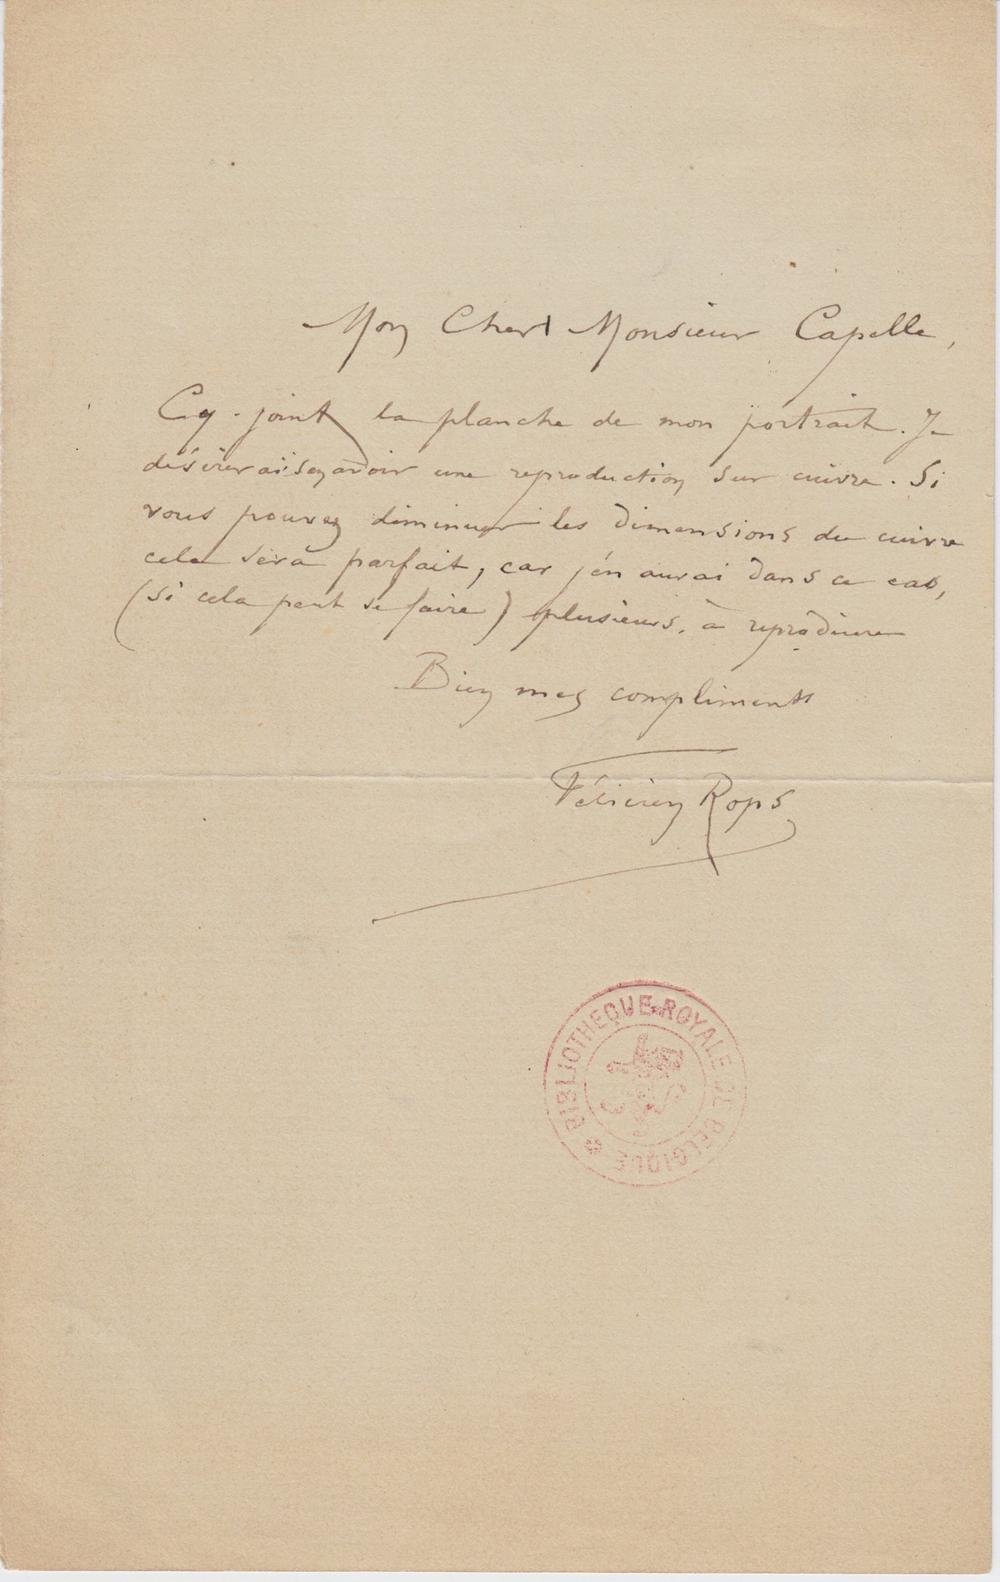 Mon Cher Monsieur Capelle,
Cy-joint la planche de mon portrait. Je
désirerais en avoir une reproduction sur cuivre. Si
vous pouvez diminuer les dimensions du cuivre
cela sera parfait, car j'en aurai dans ce cas,
(si cela peut se faire) plusieurs, à reproduire
Bien mes compliments
Félicien Rops
BIBLIOTHEQUE ROYALE DE BELGIQUE